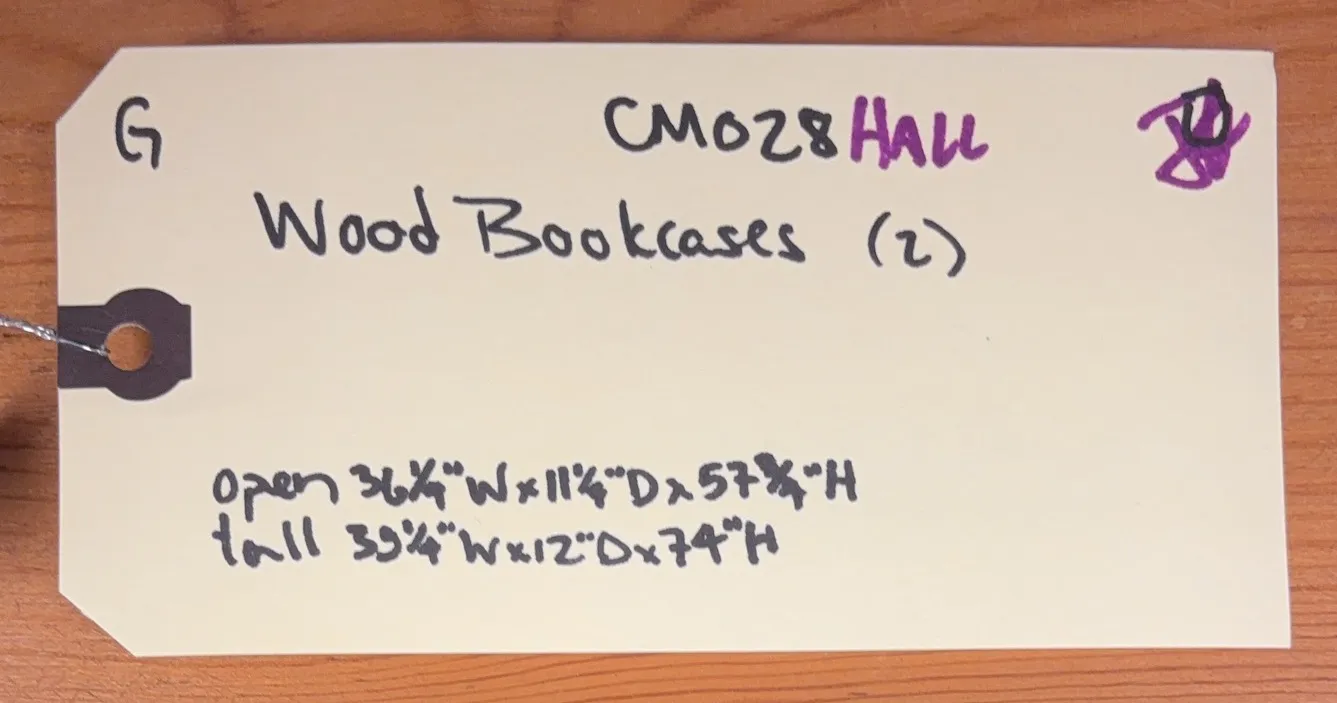 G CM028 HALL
Wood Bookcases (2)
open 36¼"W x 11¼"D x 57¾"H
tall 39¼"W x 12"D x 74"H